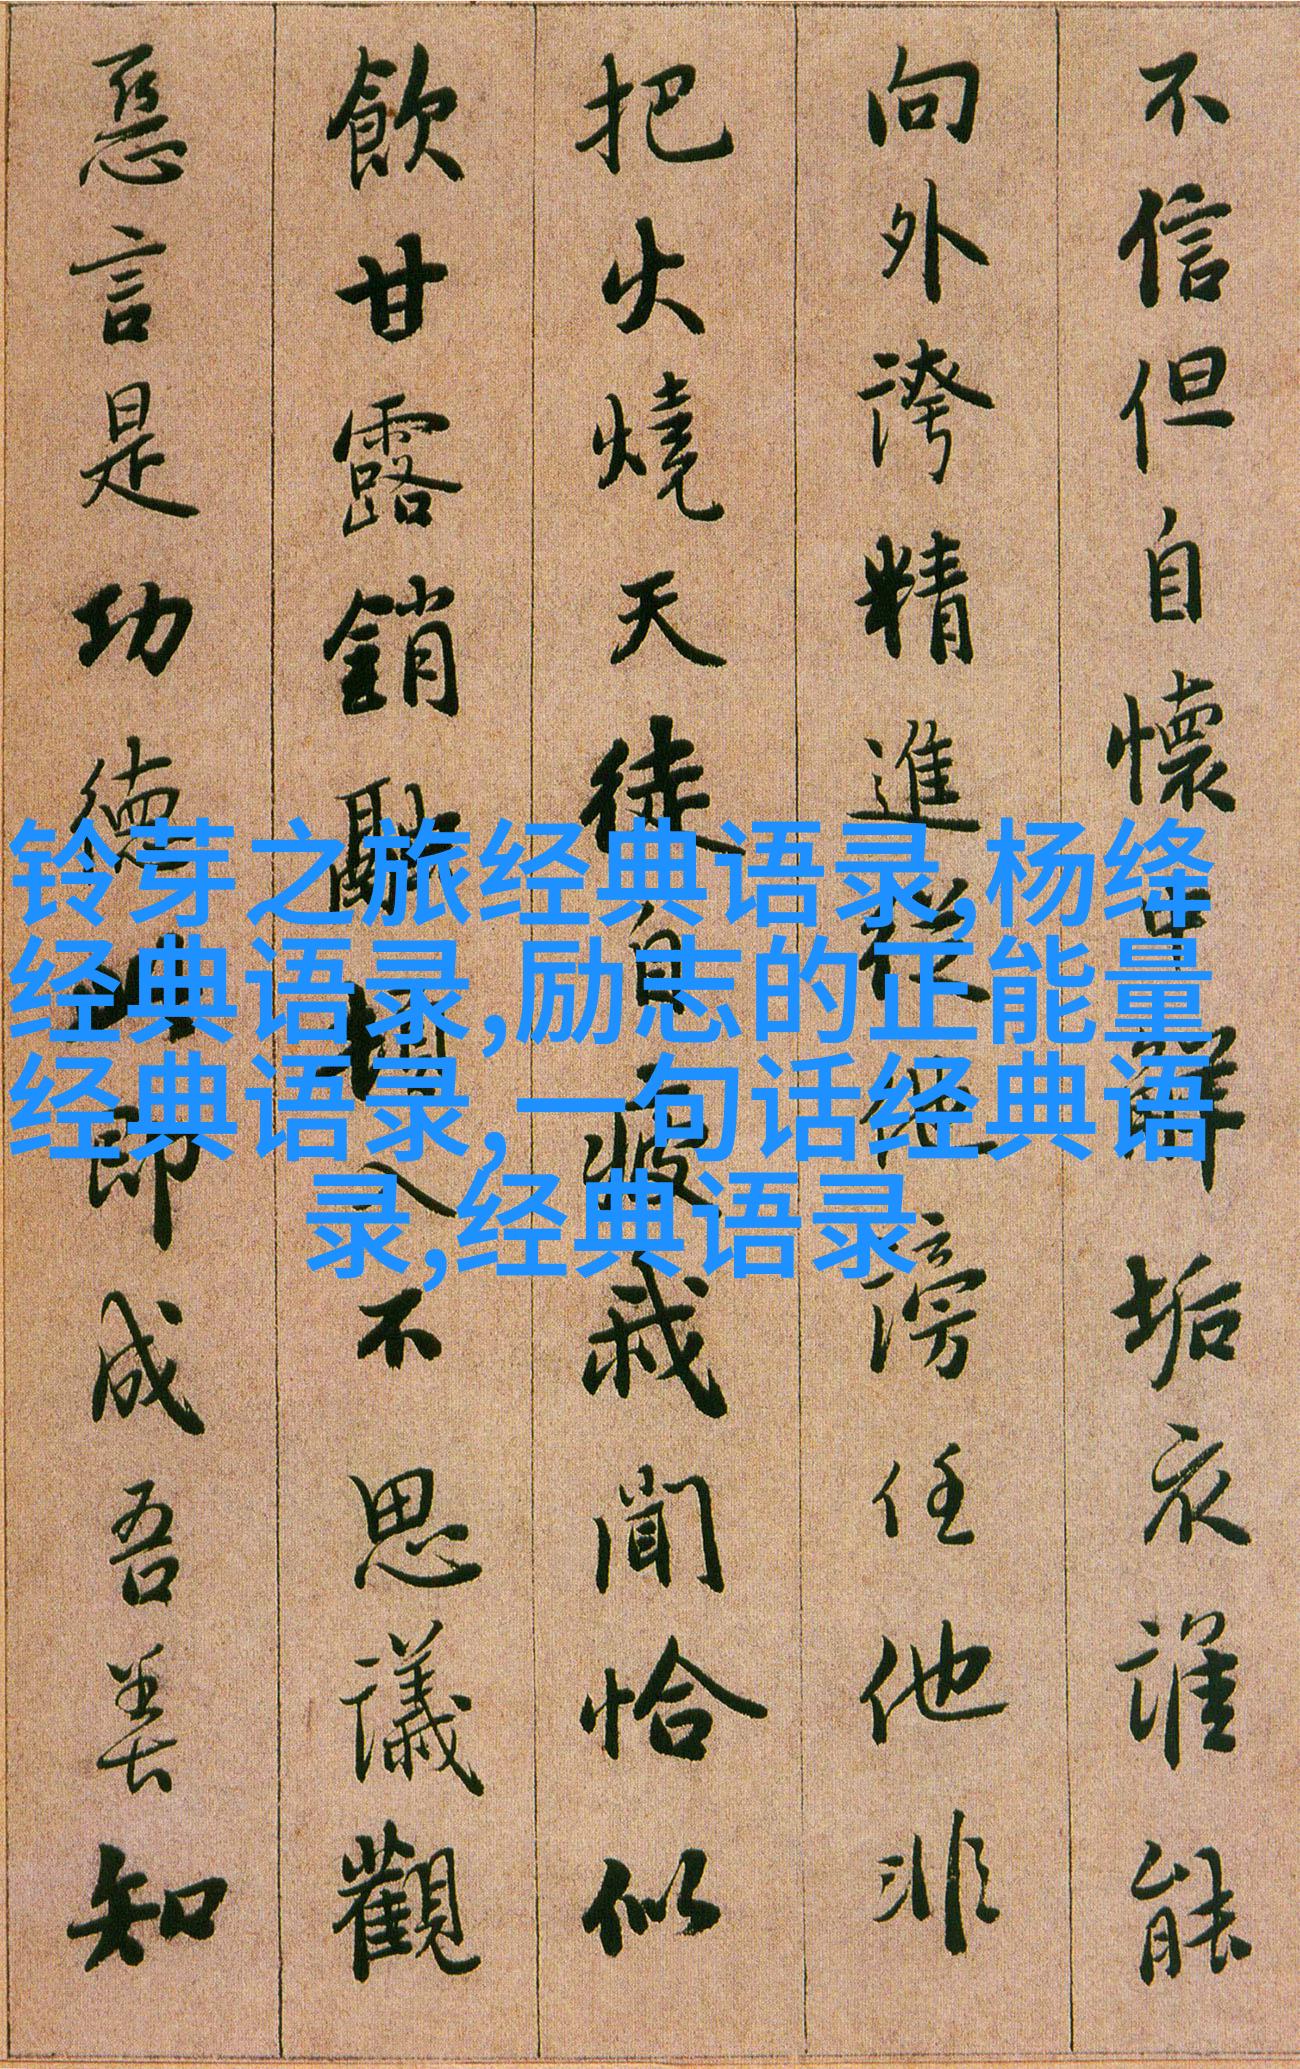 不信但自懷中解垢衣誰能
向外誇精進從他謗任他非
把火燒天徒自疲我聞恰似
飲甘露銷融頓入不思議觀
惡言是功德此即成吾善知
铃芽之旅经典语录,杨绛
经典语录,励志的正能量
经典语录,一句话经典语
录,经典语录